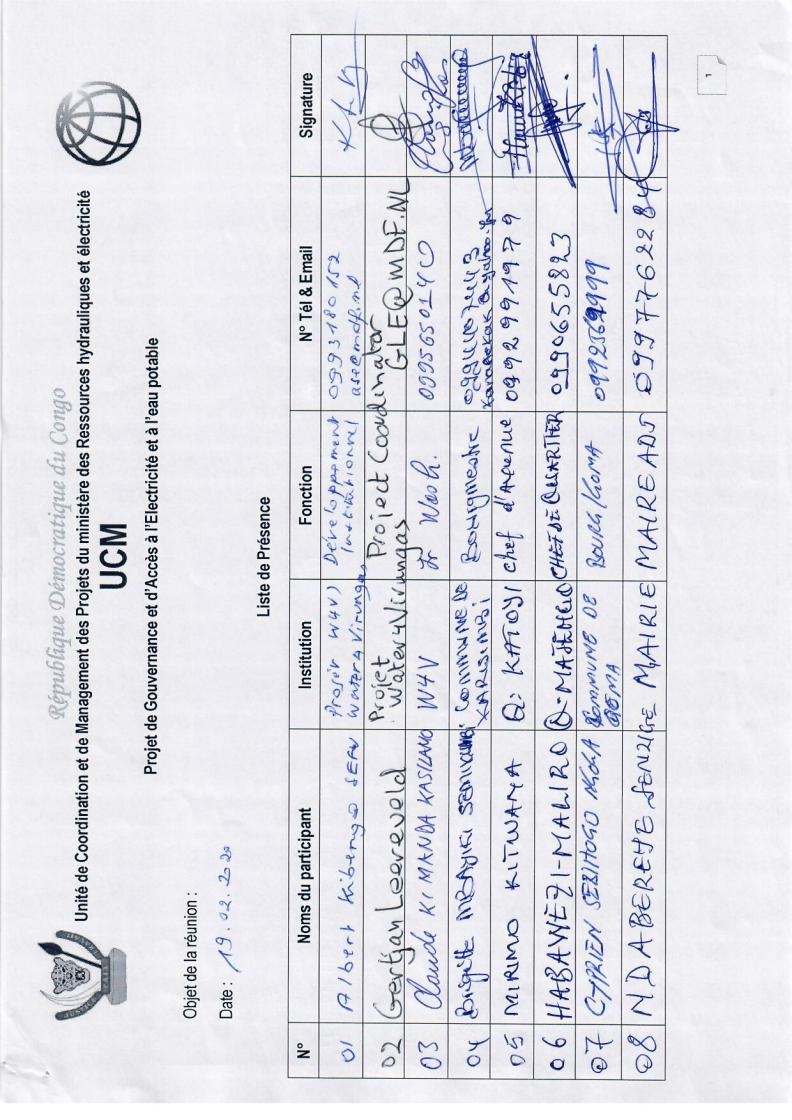 République Démocratique du Congo
Unité de Coordination et de Management des Projets du ministère des Ressources hydrauliques et électricité
UCM
Projet de Gouvernance et d'Accès à l'Electricité et à l'eau potable
Liste de Présence
Objet de la réunion :
Date : 19.02.2020
N° Noms du participant Institution Fonction N° Tél & Email Signature
01 Albert Kibengo SERU Projet W4V) Water4Virungas Développement Institutionnel 0993180152
02 Gertjan Leereveld Projet Water4Virungas Project Coordinator GLE@MDF.NL
03 Claude KIMANDA KASILAMO W4V Jr Wash.
04 Brigitte MBAJIKI Commune de KARISIMBI Bourgmestre
05 MIRIMO KITWANA Q. KATOYI chef d'Avenue 0992991979
06 HABAWEZI-MALIRO Q-MAJENGO CHEF DE QUARTIER 0990655823
07 CYPRIEN SEBIHOGO COMMUNE DE GOMA BOURG/GOMA
08 NDABEREYE SENZIGE MAIRIE MAIRE ADJ 0997762284
1